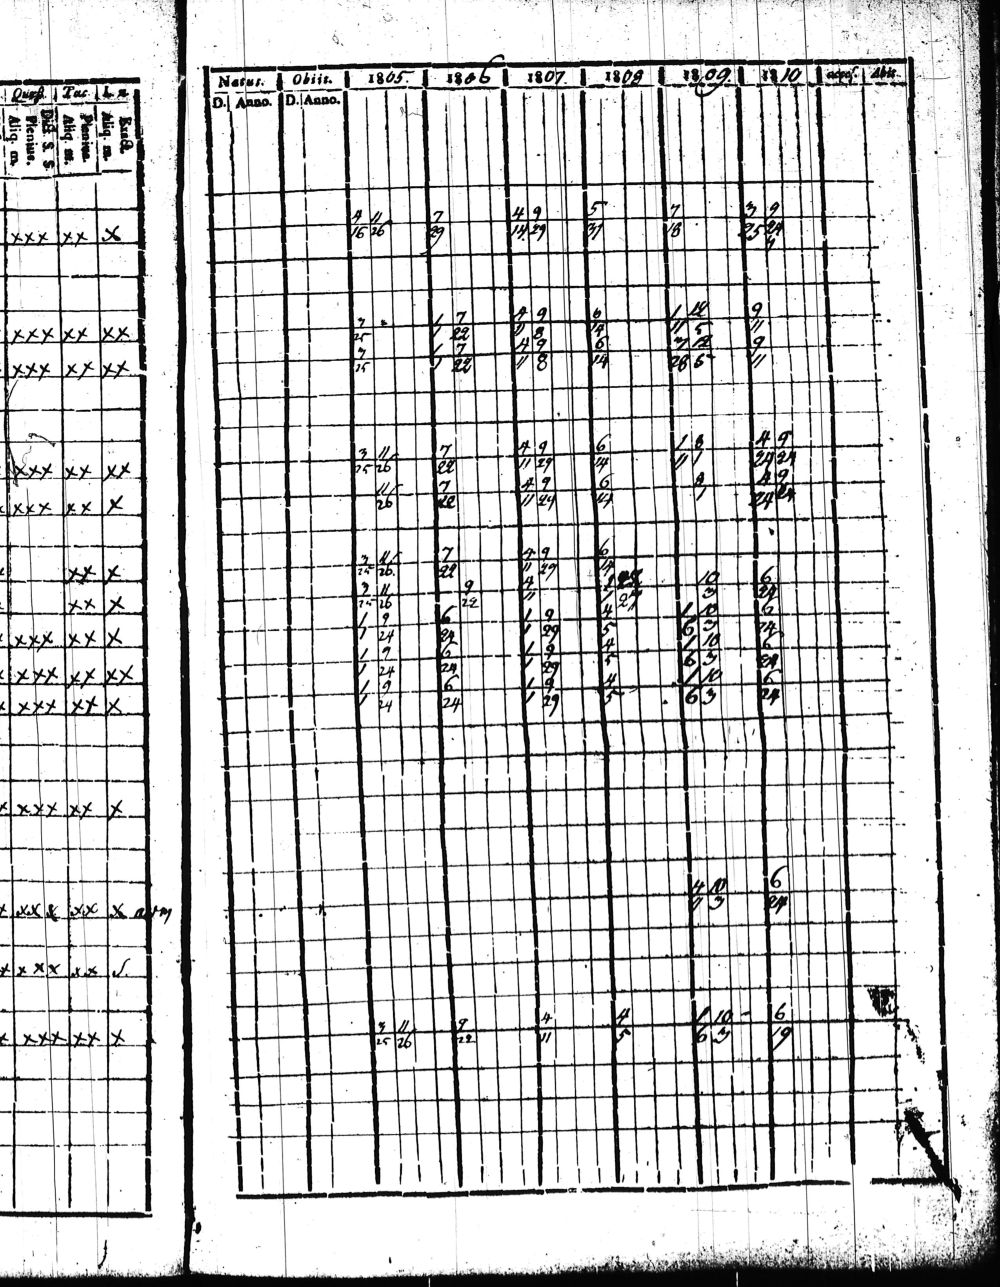 Quæst. Tac. L. n.
Aliq. m. Plenius. Dict. S. S. Aliq. m. Plenius. Aliq. m. Exact.
Natus. Obiit. 1805. 1806 1807. 1808 1809. 1810 accesf. Abit.
D. Anno. D. Anno.
4 11 7 4 9 5 7 3 9
xxx xx x 16 26 29 14 29 31 18 25 24
3 1 7 4 9 6 1 12 9
xxx xx xx 25 1 22 11 8 14 11 5 11
3 1 7 4 9 6 3 12 9
xxx xx xx 25 1 22 11 8 14 26 5 11
3 11 7 4 9 6 1 8 4 9
xxx xx xx 25 26 22 11 29 14 11 1 24 24
11 7 4 9 6 4 9
xxx xx x 26 22 11 29 14 1 24 24
3 11 7 4 9 6
xx x 25 26 22 11 29 14
3 11 9 4 10 6
xx x 25 26 22 11 1 27 3 24
1 9 6 1 9 4 1 10 6
xxx xx x 1 24 24 1 29 5 6 3 24
1 9 6 1 9 4 1 10 6
xxx xx xx 1 24 24 1 29 5 6 3 24
1 9 6 1 9 4 1 10 6
xxx xx x 1 24 24 1 29 5 6 3 24
x xxx xx x
4 10 6
x xxx xx x 11 3 24
x xxx xx
3 11 9 4 4 1 10 6
x xxx xx x 25 26 22 11 5 6 3 19